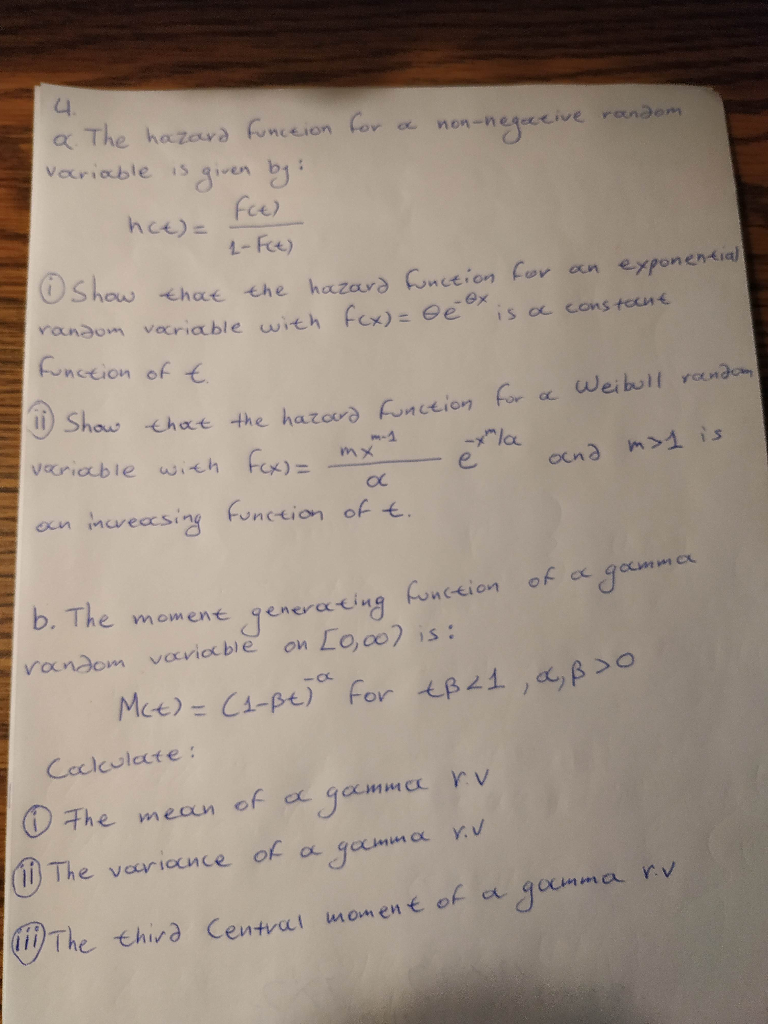 4.
a. The hazard function for a non-negative random
variable is given by:
h(t) = f(t) / 1-F(t)
(i) Show that the hazard function for an exponential
random variable with f(x) = θe^-θx is a constant
function of t.
(ii) Show that the hazard function for a Weibull random
variable with f(x) = mx^m-1 / α e^-x^m/α and m>1 is
an increasing function of t.
b. The moment generating function of a gamma
random variable on [0,∞) is:
M(t) = (1-βt)^-α for tβ<1, α,β>0
Calculate:
(i) The mean of a gamma r.v
(ii) The variance of a gamma r.v
(iii) The third Central moment of a gamma r.v